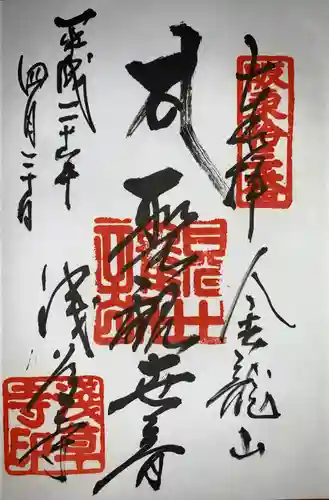 奉拝
坂東十三番
金龍山
聖観世音
浅草寺
平成二十六年
四月二十日
浅草寺印